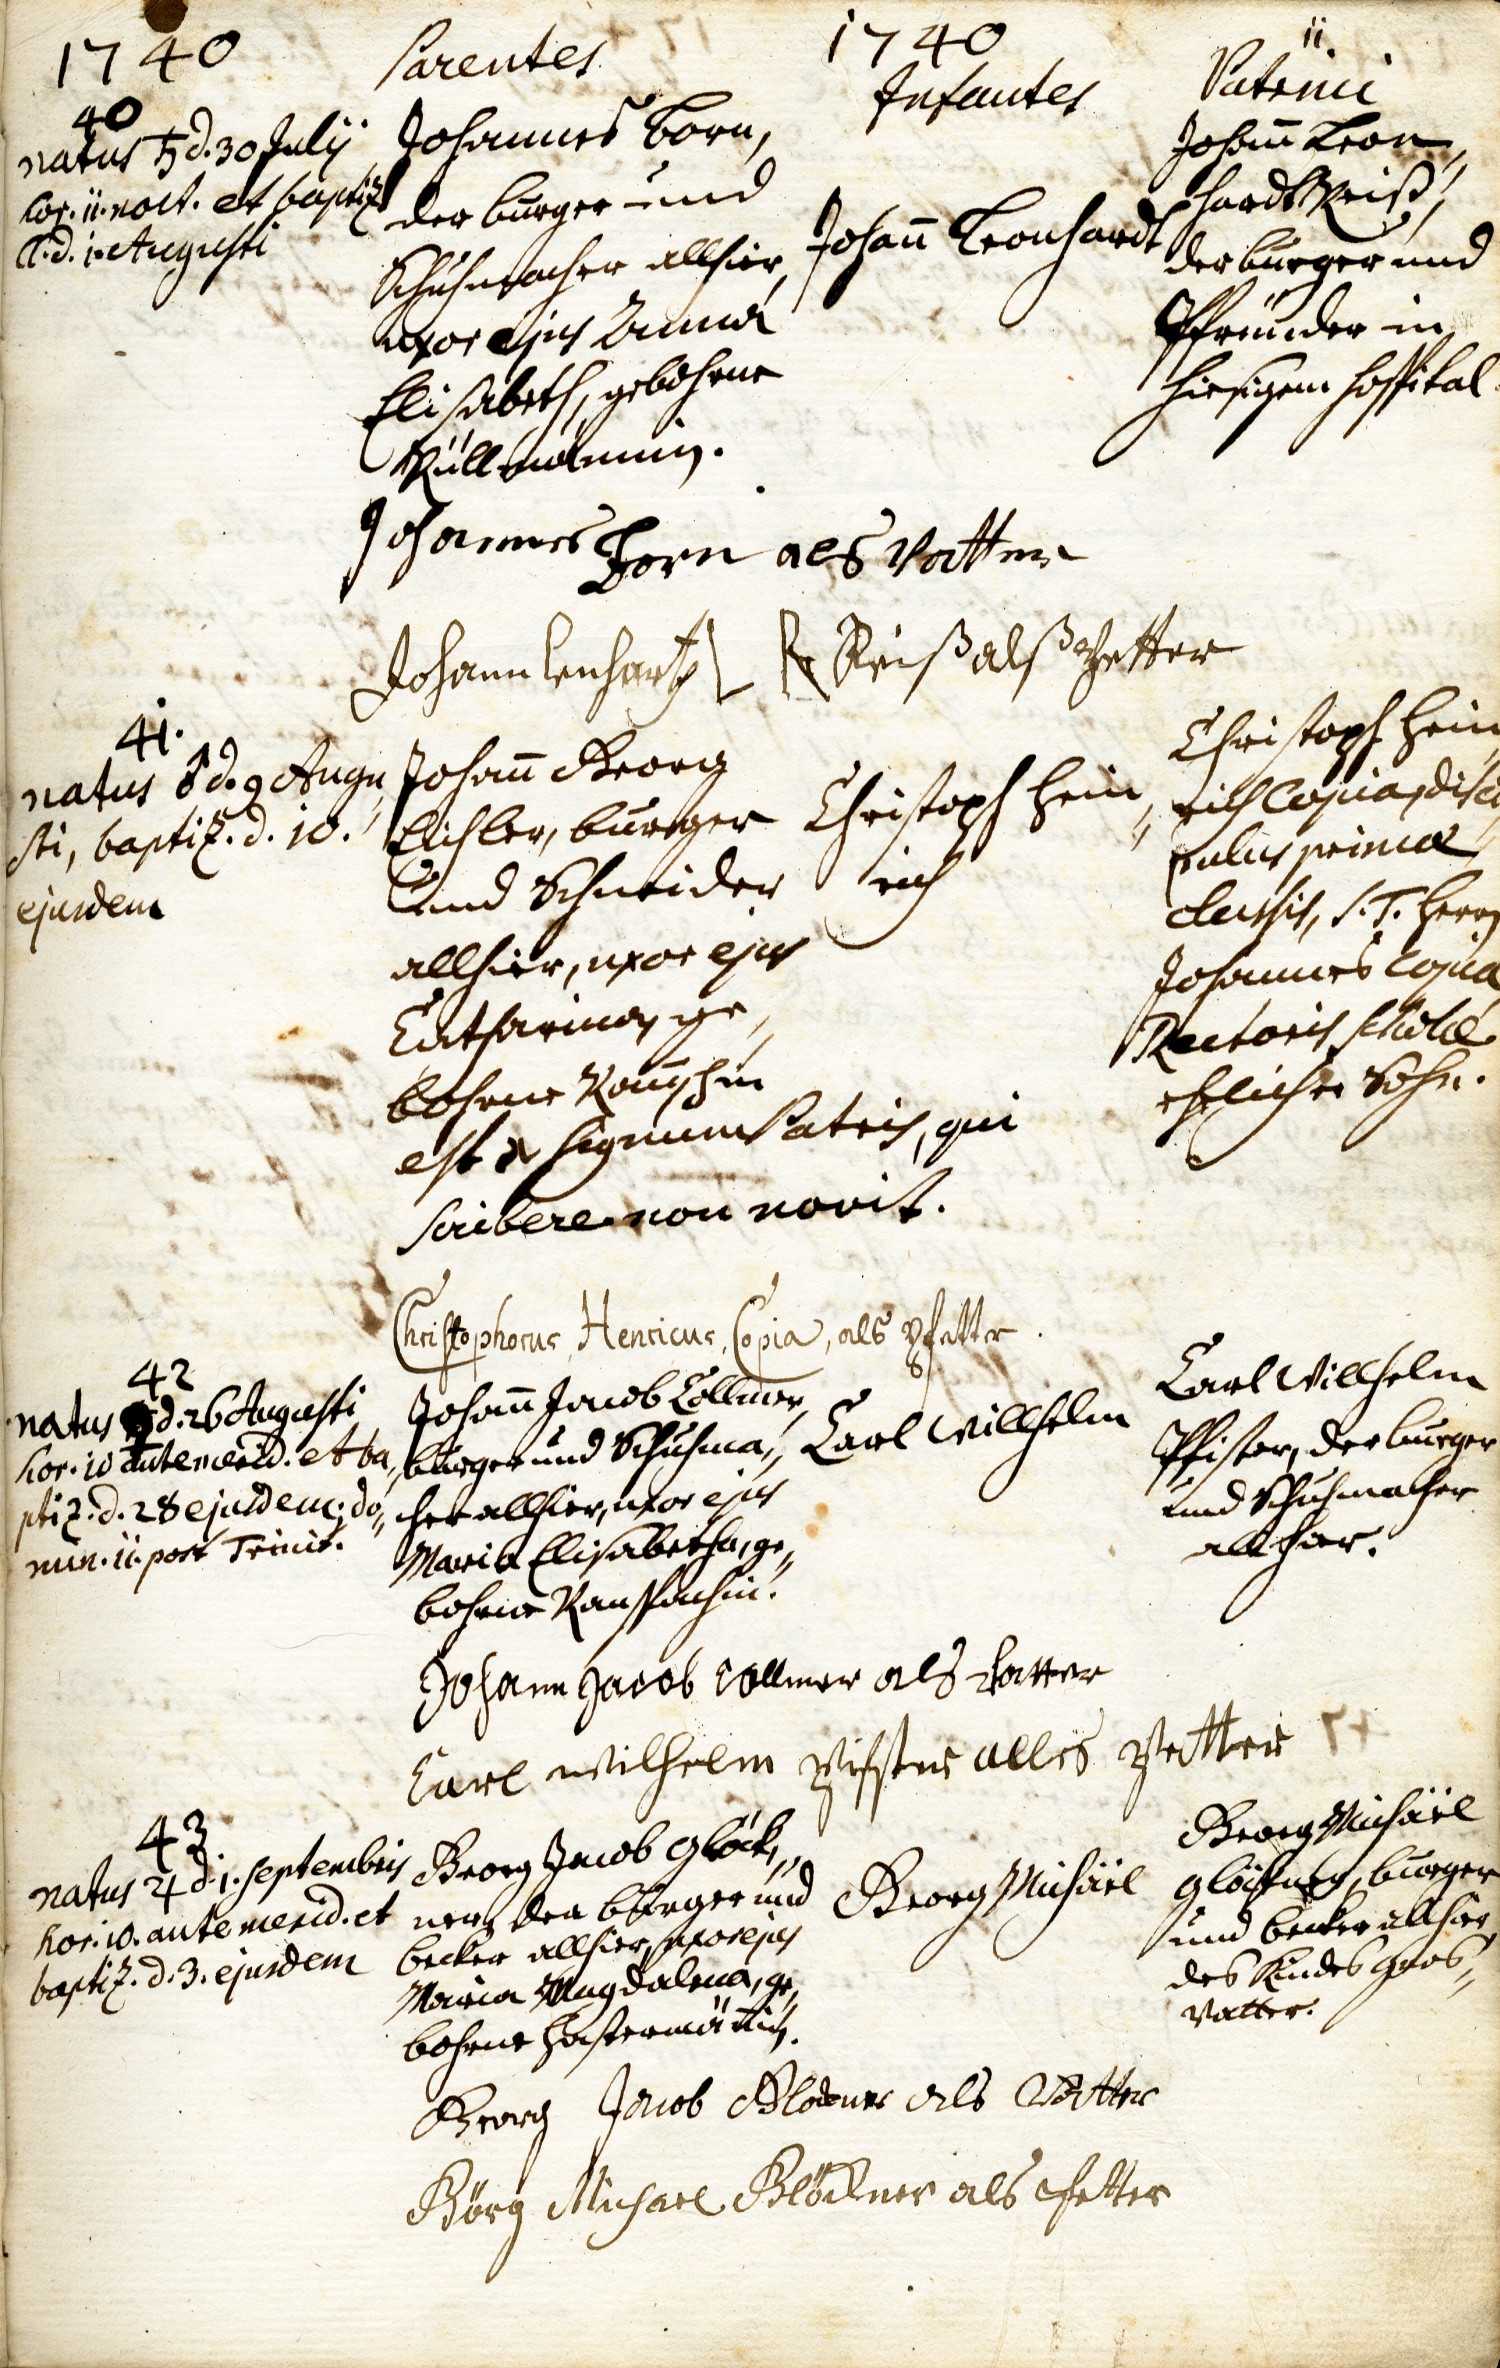 1740
Parentes
1740
Infantes
11.
Patrini
40
natus ♄ d. 30 Julij
hor. 11. noct. et baptiz.
d. 1. Augusti
Johannes Born,
der burger und
Schuhmacher allhier,
uxor ejus Anna
Elisabeth, gebohrne
Johann Leonhardt
Johann Leon,
hardt Reiß,
der burger und
Pfründer in
hiesigem Hospital.
Johannes Born als Vatter
Johann Lenhart Reiß alß Pfetter
41.
natus ♂ d. 9 Augu,
sti, baptiz. d. 10.
ejusdem
Johann Georg
Eichler, burger
und Schneider
allhier, uxor ejus
Catharina, ge,
bohrne
est signum Patris, qui
scribere non novit.
Christoph Hein,
rich
Christoph Hein,
rich Copia, disci
pulus primæ
classis, S. T. Herrn
Johannes Copia
Rectoris scholæ
ehelicher Sohn.
Christophorus, Henricus, Copia, als Pfetter.
42
natus d. 26 Augusti
hor. 10 ante merid. et ba,
ptiz. d. 28 ejusdem, do,
min. 11. post Trinit.
Johann Jacob Collmer,
burger und Schuhma,
cher allhier, uxor ejus
Maria Elisabetha, ge,
bohrne Ranspachin.
Carl Willhelm
Carl Willhelm
Pfister, der burger
und Schuhmacher
allhier.
Johann Jacob Collmer als Vatter
Carl Wilhelm Pfister alles Petter
43
natus ♃ d. 1. Septembris
hor. 10. ante merid. et
baptiz. d. 3. ejusdem
Georg Jacob Glöck,
ner, der burger und
becker allhier, uxor ejus
Maria Magdalena, ge,
bohrne
Georg Michäel
Georg Michäel
Glöckner, burger
und becker allhier,
des Kindes Gros,
vatter.
Georg Jacob Glockner als Vatter
Görg Michael Glöckner als Pfetter